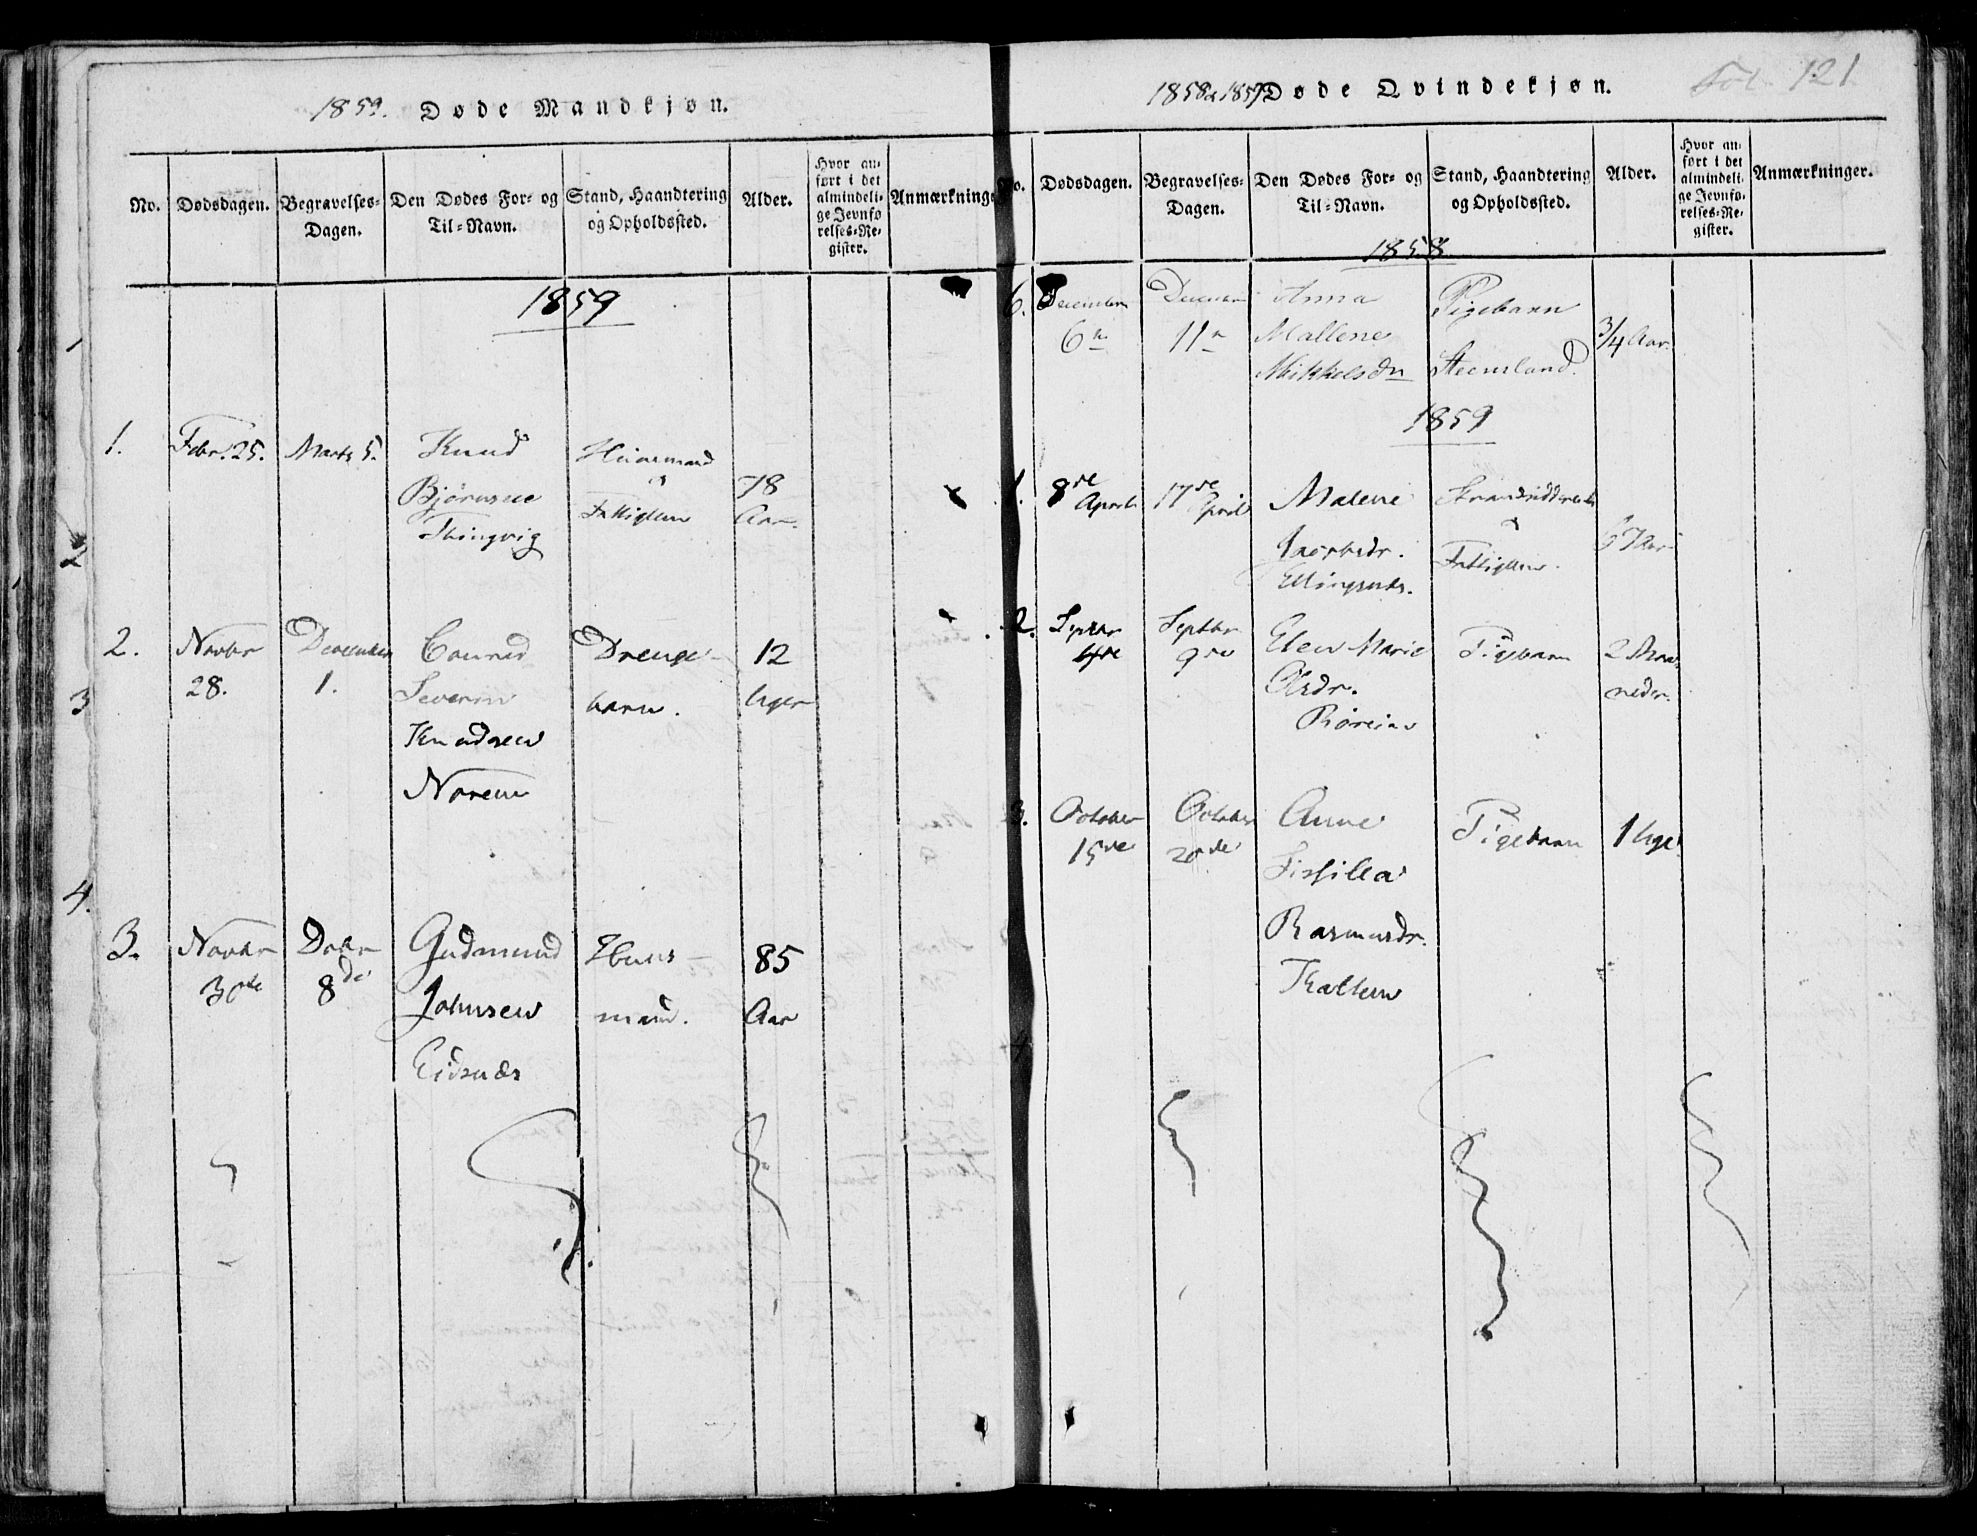 1859. Døde Mandkjøn.
No.
Dødsdagen.
Begravelses-
Dagen.
Den Dødes For- og
Til-Navn.
Stand, Haandtering
og Opholdssted.
Alder.
Hvor an-
ført i det
almindeli-
ge Jevnfø
relses-Re-
gister.
Anmærkninge
1859
1.
Febr. 25.
Marts 5.
Knud
Bjørnsen
Thingvig
Huusmand
Fattiglem
78
Aar.
2.
Novbr
28.
December
1.
Conrad
Severin
Knudsen
Norem
Drenge-
barn.
12
Uger
3.
Novbr
30te
Decbr
8de
Gudmund
Johnsen
Eidsnæs
Huus-
mand.
85
Aar
1
2
3
4.
1858 & 1859 Døde Qvindekjøn.
Fol. 121
No.
Dødsdagen.
Begravelses-
Dagen.
Den Dødes For- og
Til-Navn.
Stand, Haandtering
og Opholdssted.
Alder.
Hvor an-
ført i det
almindeli-
ge Jevnfø-
relses-Re-
gister.
Anmærkninger.
1858
6.
December
6te
December
11te
Anna
Mallene
Mikkelsdtr
Pigebarn
Steensland.
3/4 Aar.
1859
1.
8de
April
17de
April
Malene
Jacobsdr.
Fattiglem.
67 Aar
2.
Septbr
4de
Septbr
9de
Elen Marie
Olsdr.
Pigebarn
2 Maa-
neder.
3.
October
15de
October
20de
Anne
Sissilla
Rasmusdr.
Pigebarn
1 Uge
4